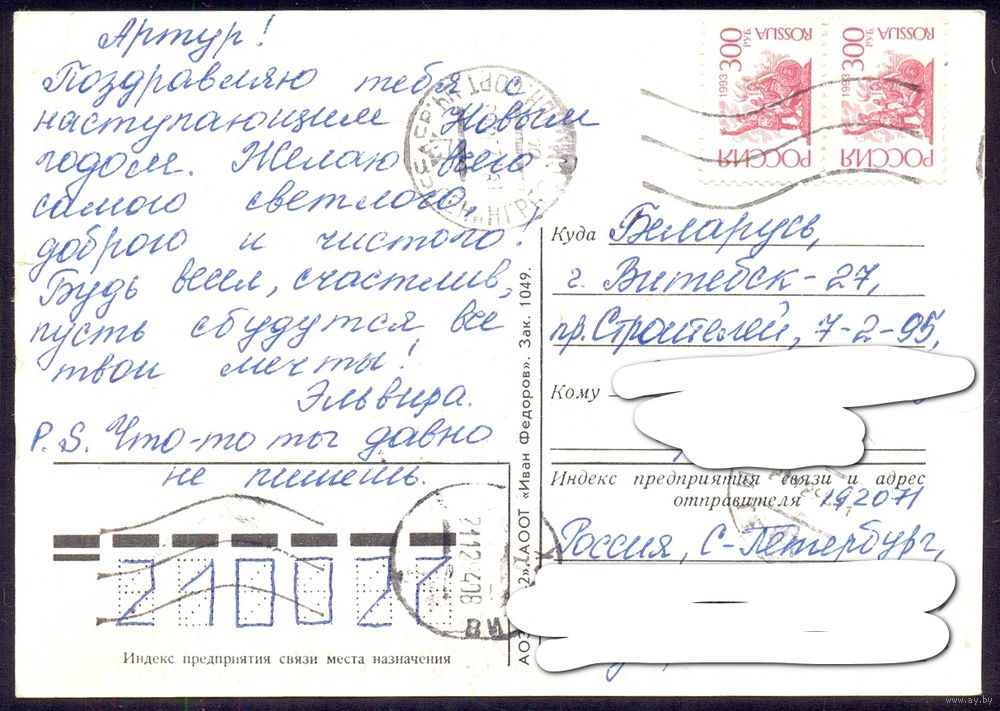 Артур!
Поздравляю тебя с
наступающим Новым
годом. Желаю всего
самого светлого,
доброго и чистого!
Будь весел, счастлив,
пусть сбудутся все
твои мечты!
Эльвира.
P.S. Что-то ты давно
не пишешь.
300 РУБ
ROSSIJA
1993
РОССИЯ
300 РУБ
ROSSIJA
1993
РОССИЯ
Куда Беларусь,
г. Витебск-27,
пр. Строителей, 7-2-95,
Кому
Индекс предприятия связи и адрес
отправителя 192071
Россия, С-Петербург,
«Иван Федоров». Зак. 1049.
21027
Индекс предприятия связи места назначения
www.ay.by